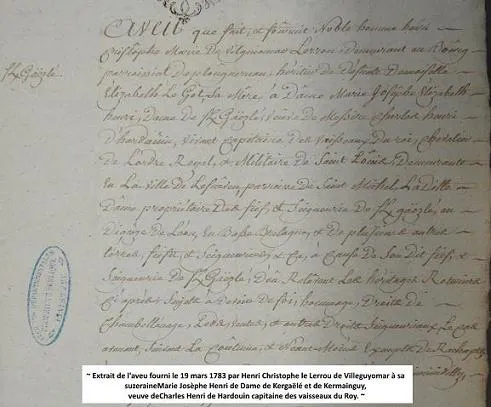 Aveu que fait, et fournit Noble homme henri
Christophe Marie De Vilguiomar Lerrou Demeurant au Bourg
parroissial De plouguerneau, héritier De Defunte Damoiselle
f/ Kgäqlé.
Elizabeth Le Gof, Sa Mere, à Dame Marie Josephe Elizabeth
henri, Dame De Kgäqlé, veuve De Messire Charles henri
D'hardoüin, vivant Capitaine Des Vaisseaux Du roi, Chevalier
De Lordre Royal, & Militaire De Saint Loüis, Demeurante
En La Ville De Lesneven, paroisse De Saint Michel, La ditte
Dame propriétaire Des fiefs, & Seigneurie Du Kgäqlé, en
De Léon, En Basse Bretagne, & De plusieurs autres
terres, fiefs, & Seigneuries, & Ce, à Cause De Son Dit fief, &
Seigneurie Du Kgäqle, D'eu Relevent Les héritages Roturiers
Ci après Sujets a Devoir De foi, hommage, Droits De
Chambellenage, Lods, Ventes, & autres Droits Seigneuriaux Le Cas
avenant, Suivant La Coutume, & Neant-Moins Exempts De Rachapts
~ Extrait de l'aveu fourni le 19 mars 1783 par Henri Christophe le Lerrou de Villeguyomar à sa
suzeraineMarie Josèphe Henri de Dame de Kergaëlé et de Kermainguy,
veuve deCharles Henri de Hardouin capitaine des vaisseaux du Roy. ~